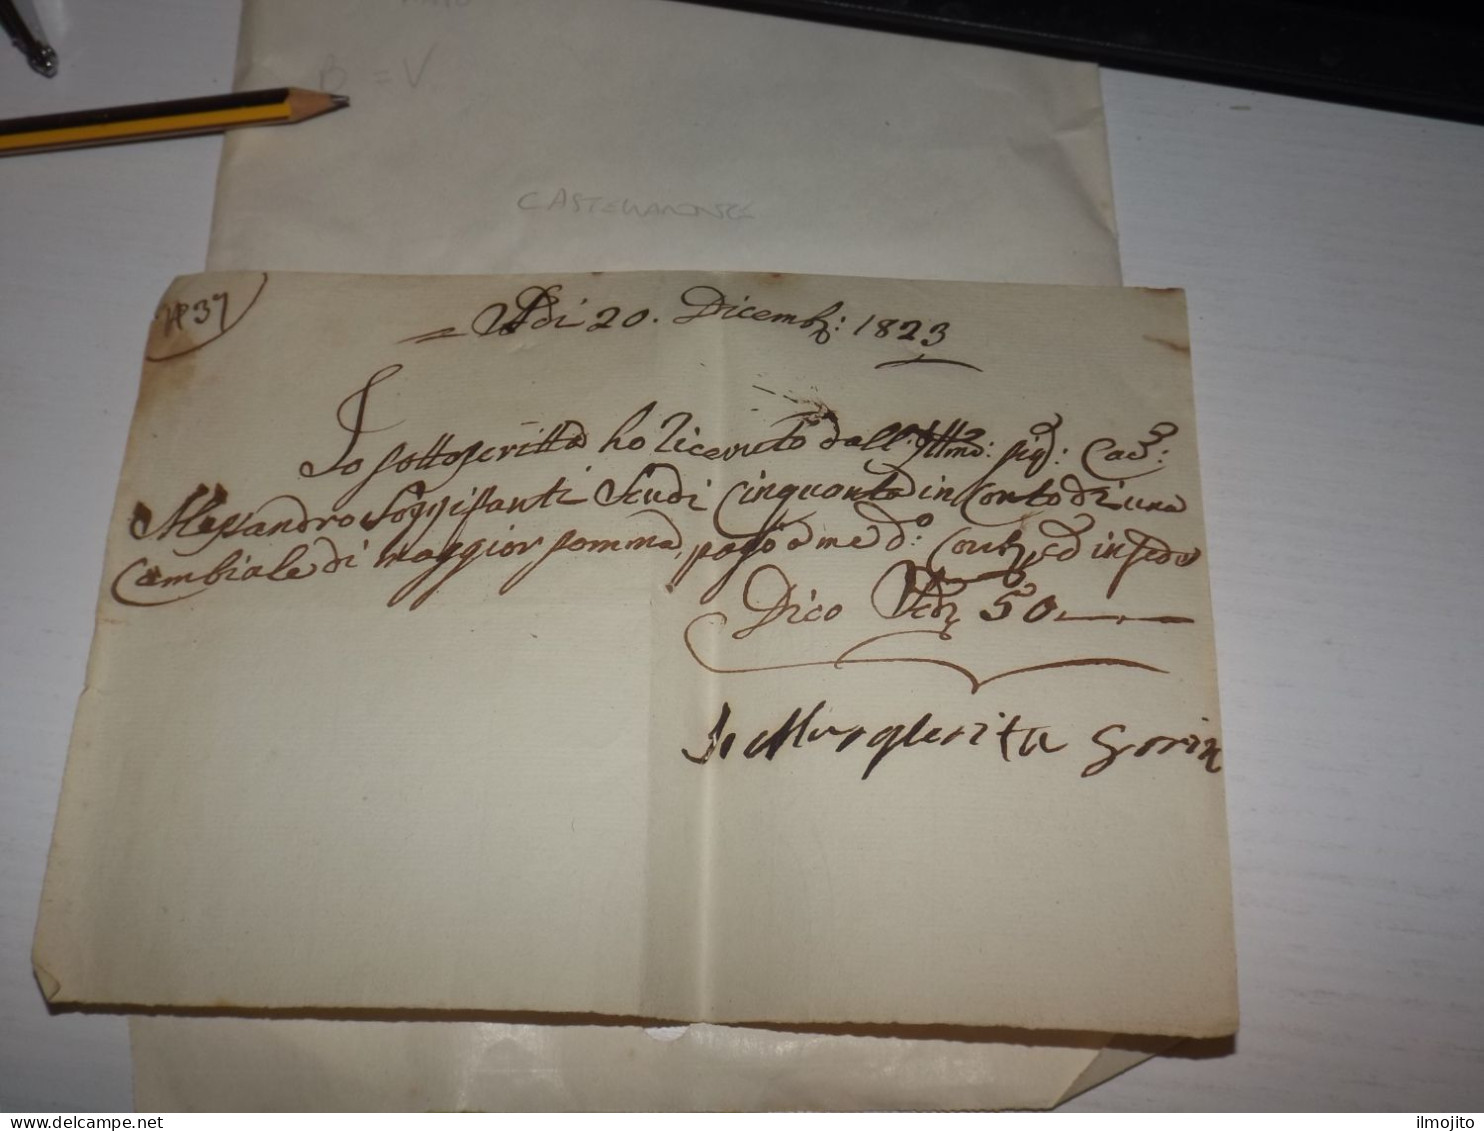 B = V
CASTELLANONSCE
N 37
= Adi 20. Dicemb: 1823
Io sottoscritta ho riceuuto dall: Illmo: Sig: Cav:
Alessandro Soggifanti Scudi Cinquanta in Conto di una
Cambiale di maggior somma, pago a me do: Cont: ed in fede
Dico Scdi 50
Io Margherita Gorin
ilmojito